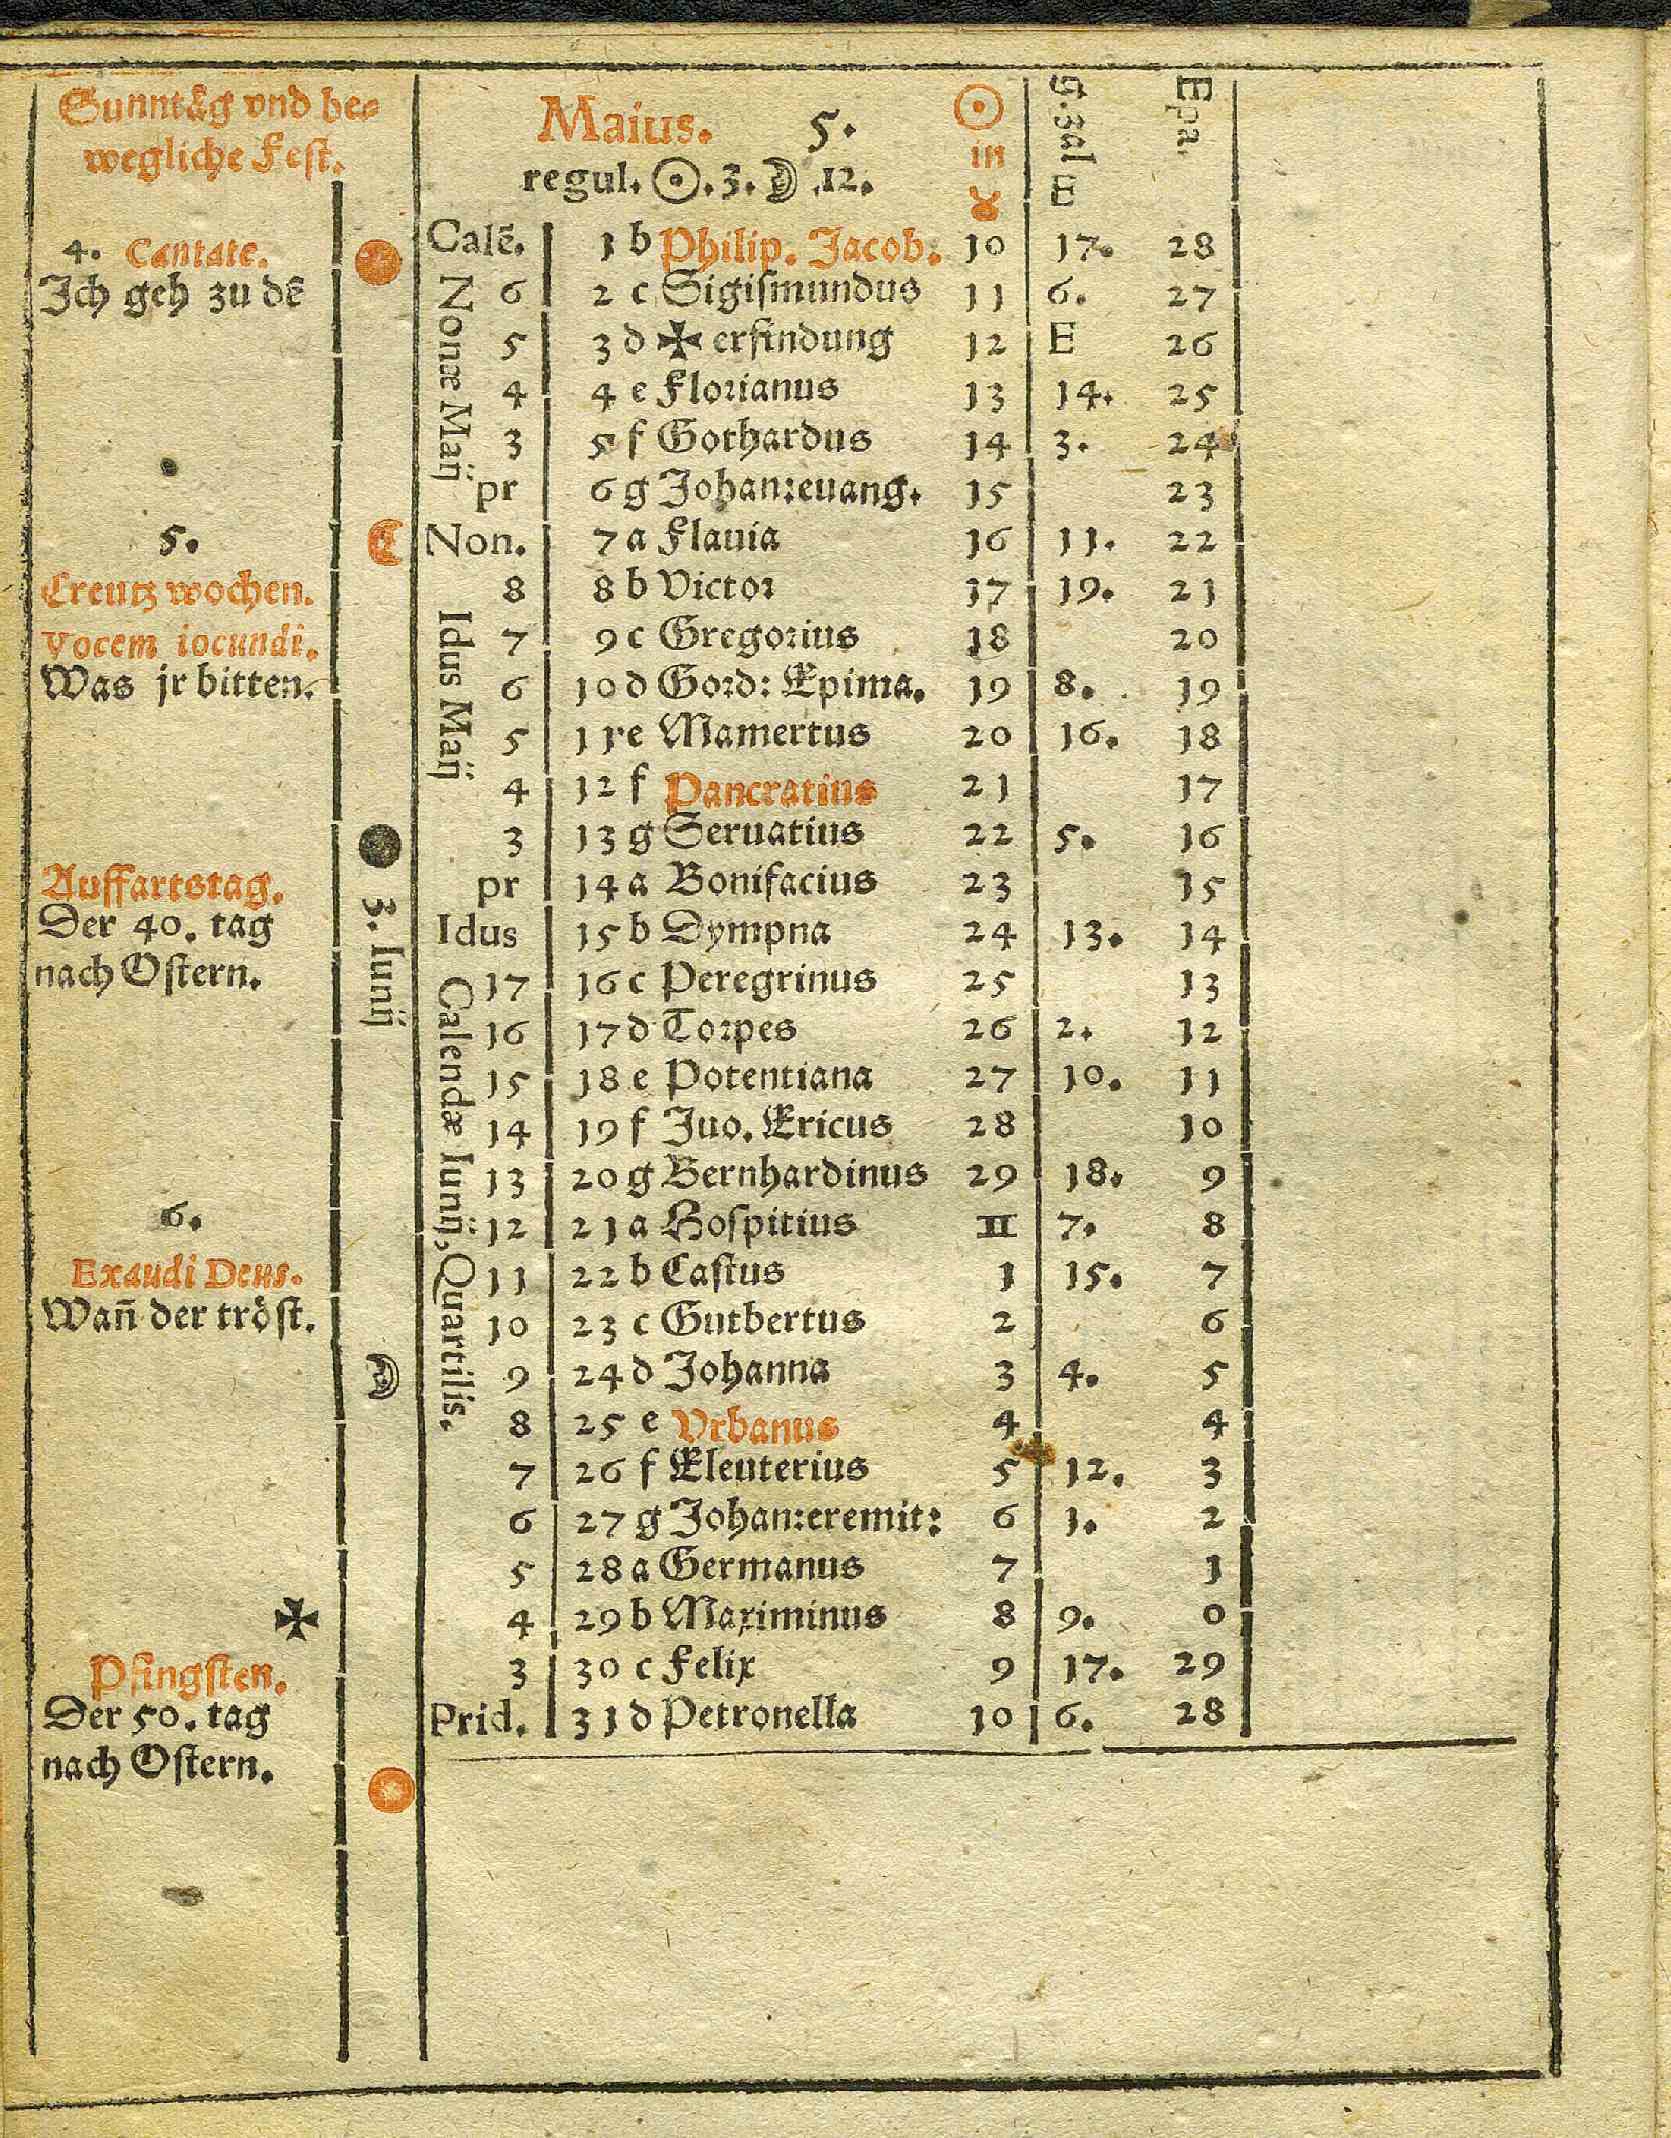 Sunntäg vnd be-
wegliche Fest.
4. Cantate.
Ich geh zu dē
5.
Creutz wochen.
Vocem iocundi.
Was jr bitten.
Auffartstag.
Der 40. tag
nach Ostern.
6.
Exaudi Deus.
Wañ der tröst.
✠
Pfingsten.
Der 50. tag
nach Ostern.
3. Iunij
Maius. 5.
regul. ☉.3.☽.12.
☉ in ♉
G.Zal
E
Epa.
Nonæ Maij
Idus Maij
Calendæ Iunij, Quartilis.
Calē. 1 b Philip. Jacob. 10 17. 28
6 2 c Sigismundus 11 6. 27
5 3 d ✠ erfindung 12 E 26
4 4 e Florianus 13 14. 25
3 5 f Gothardus 14 3. 24
pr 6 g Johan:euang. 15 23
Non. 7 a Flauia 16 11. 22
8 8 b Victor 17 19. 21
7 9 c Gregorius 18 20
6 10 d Gord: Epima. 19 8. 19
5 11 e Mamertus 20 16. 18
4 12 f Pancratius 21 17
3 13 g Seruatius 22 5. 16
pr 14 a Bonifacius 23 15
Idus 15 b Dympna 24 13. 14
17 16 c Peregrinus 25 13
16 17 d Torpes 26 2. 12
15 18 e Potentiana 27 10. 11
14 19 f Juo. Ericus 28 10
13 20 g Bernhardinus 29 18. 9
12 21 a Hospitius II 7. 8
11 22 b Castus 1 15. 7
10 23 c Gutbertus 2 6
9 24 d Johanna 3 4. 5
8 25 e Vrbanus 4 4
7 26 f Eleuterius 5 12. 3
6 27 g Johan:eremit: 6 1. 2
5 28 a Germanus 7 1
4 29 b Maximinus 8 9. 0
3 30 c Felix 9 17. 29
Prid. 31 d Petronella 10 6. 28